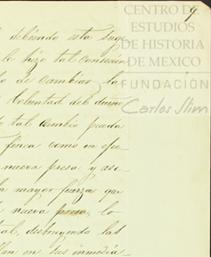 9
CENTRO DE
ESTUDIOS
DE HISTORIA
DE MEXICO
FUNDACIÓN
Carlos Slim
debiendo esta
le hizo tal concesion
de cambiar la
voluntad del dueño
tal cambio pueda
finca como en efe
nueva presa y ase
mayor fuerza que
nueva presa, lo
tal, destruyendo las
en sus inmedia